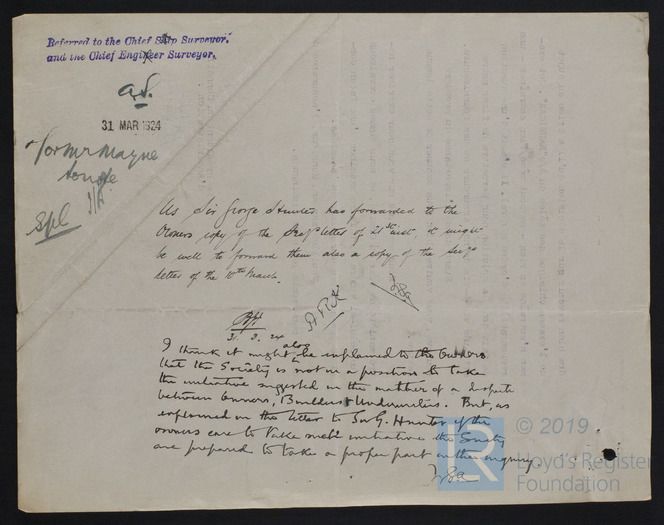 Referred to the Chief Ship Surveyor.
and the Chief Engineer Surveyor.
31 MAR 1924
For Mr Mayne
As Sir George Hunter has forwarded to the
Owners copy of the Secy's letter of 21st inst, it might
be well to forward them also a copy of the Secy's
letter of the 10th March.
31. 3. 24
also
I think it might be explained to the Owners
that the Society is not in a position to take
the initiative suggested in the matter of a dispute
between Owners, Builders & Underwriters. But, as
explained in the letter to Sir G. Hunter if the
owners care to take such initiative the Society
are prepared to take a proper part in the enquiry.
© 2019
Lloyd's Register
Foundation